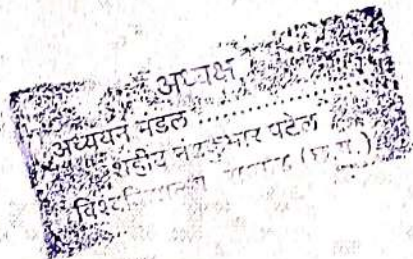 अध्यक्ष
अध्ययन मंडल ....................
शहीद नंदकुमार पटेल
विश्वविद्यालय रायगढ़ (छ.ग.)